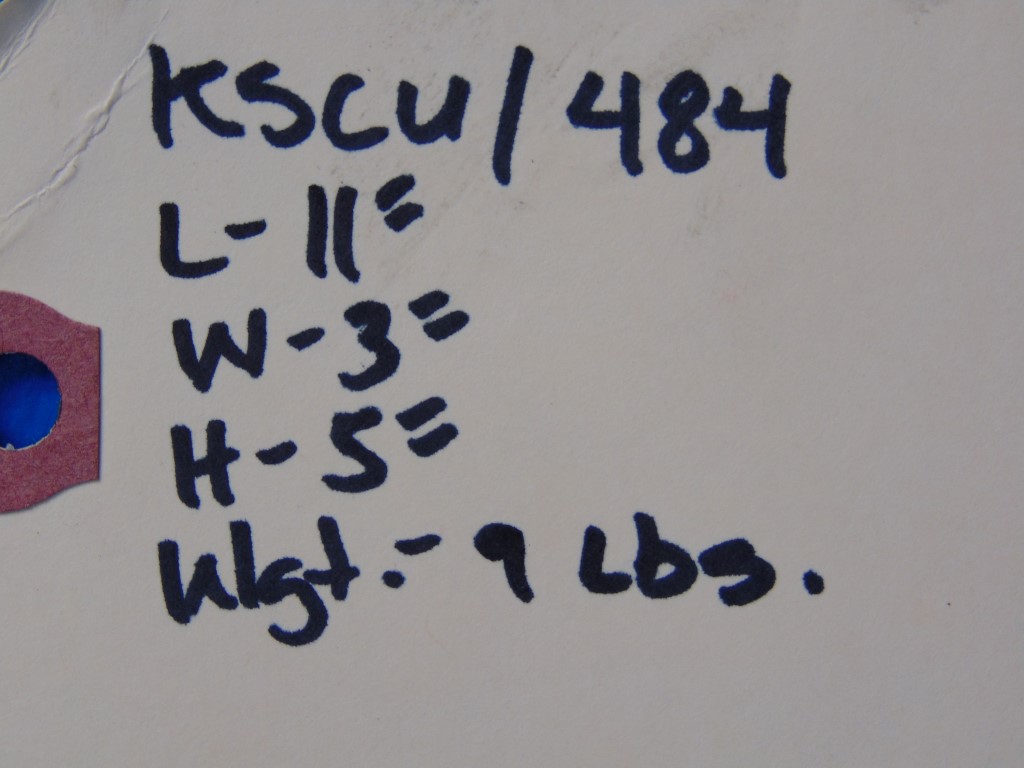 KSCU/484
L- 11"
W-3"
H-5"
Wgt.- 9 Lbs.